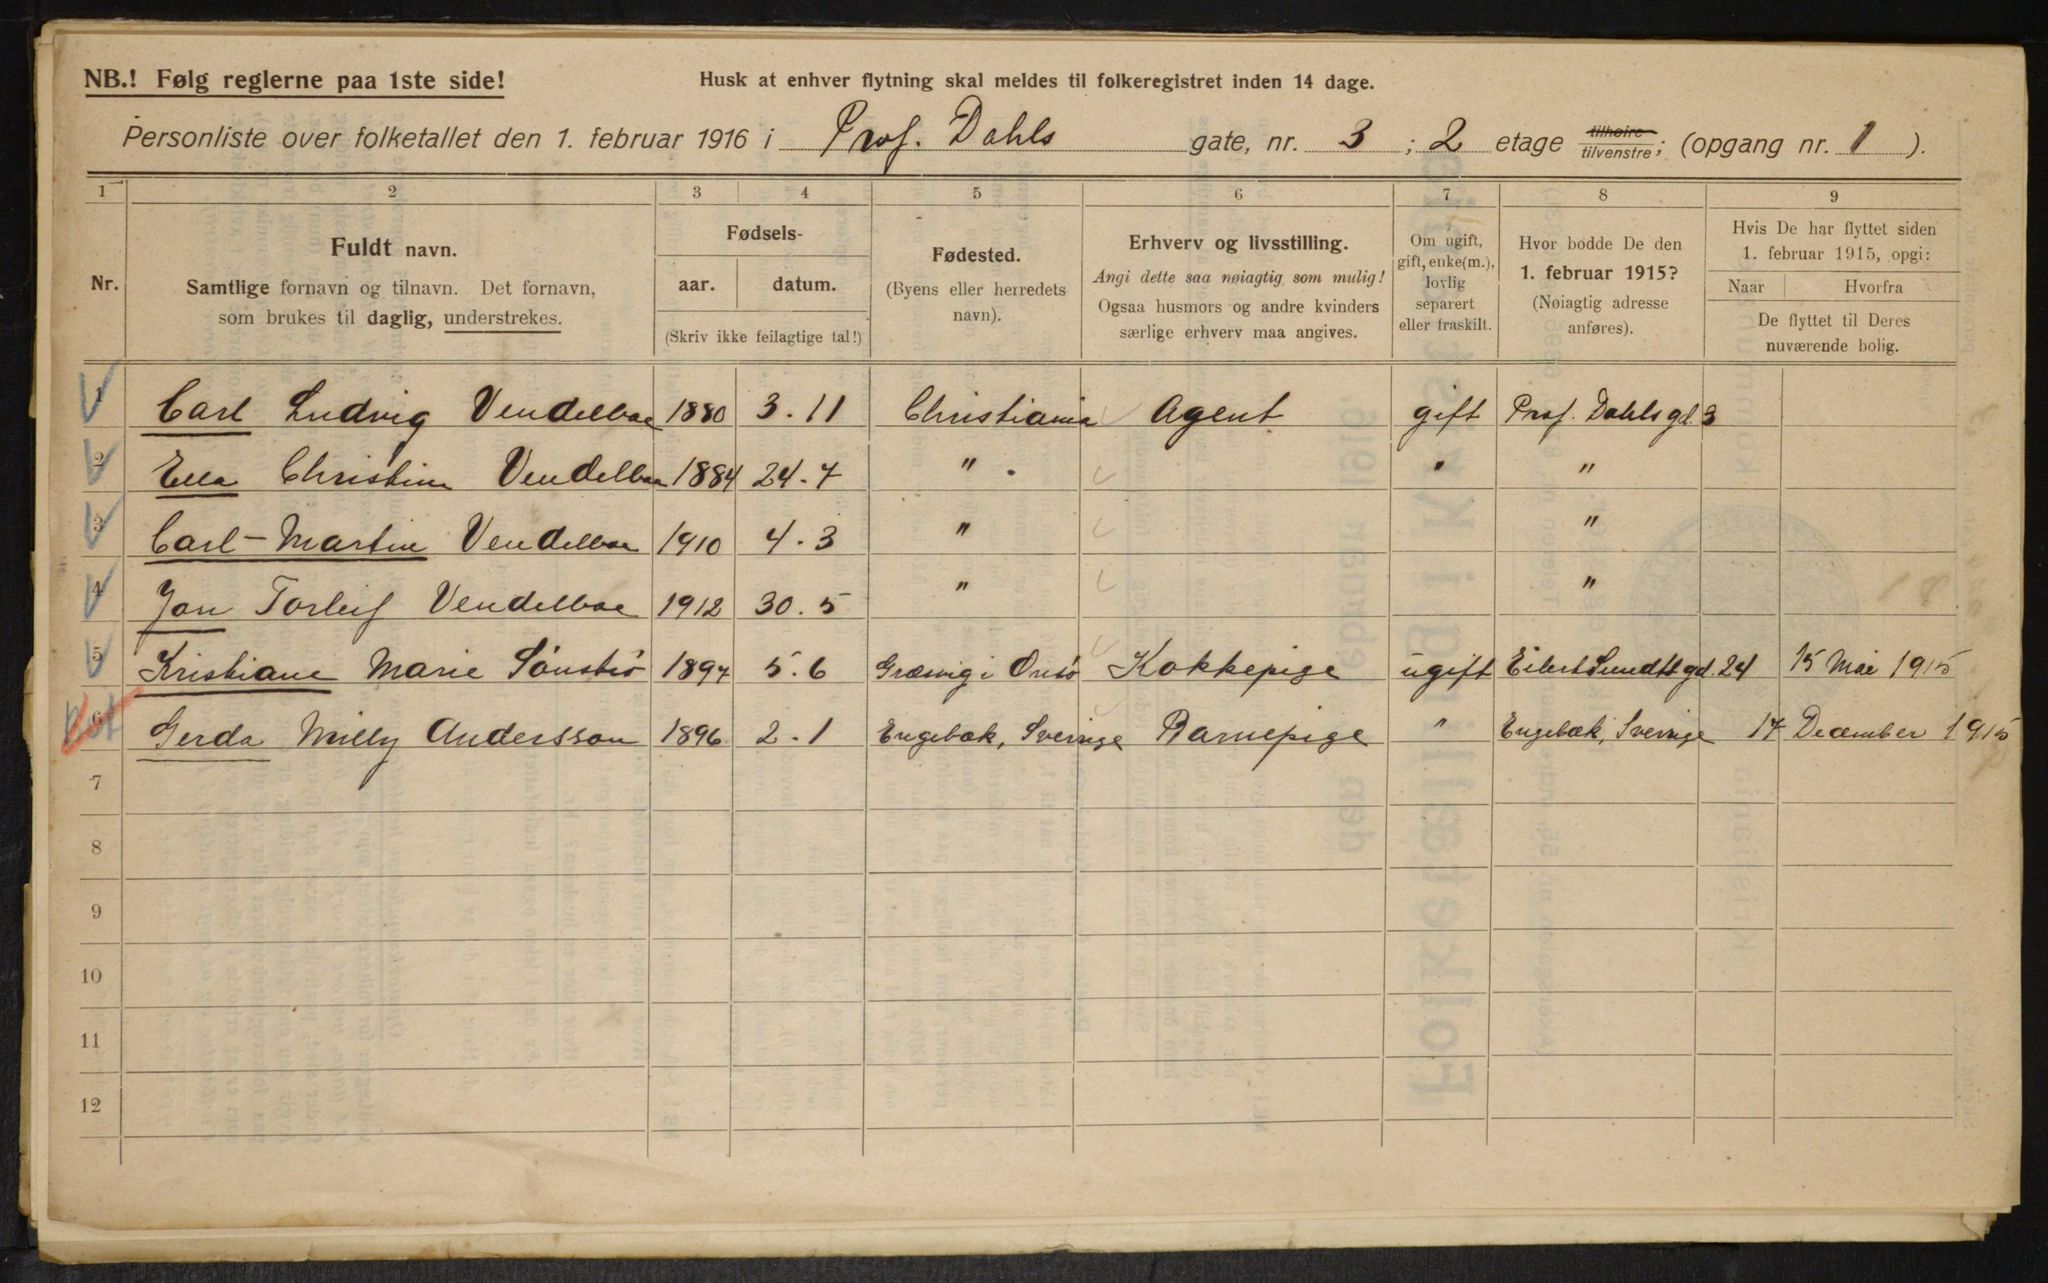 NB.! Følg reglerne paa 1ste side!
Husk at enhver flytning skal meldes til folkeregistret inden 14 dage.
Personliste over folketallet den 1. februar 1916 i Prof. Dahls gate, nr. 3 ; 2 etage tilhøire tilvenstre ; (opgang nr. 1 ).
1 2 3 4 5 6 7 8 9
Nr.
Fuldt navn.
Samtlige fornavn og tilnavn. Det fornavn,
som brukes til daglig, understrekes.
Fødsels-
aar. datum.
(Skriv ikke feilagtige tal!)
Fødested.
(Byens eller herredets
navn).
Erhverv og livsstilling.
Angi dette saa nøiagtig som mulig!
Ogsaa husmors og andre kvinders
særlige erhverv maa angives.
Om ugift,
gift, enke(m.),
lovlig
separert
eller fraskilt.
Hvor bodde De den
1. februar 1915?
(Nøiagtig adresse
anføres).
Hvis De har flyttet siden
1. februar 1915, opgi:
Naar Hvorfra
De flyttet til Deres
nuværende bolig.
1 Carl Ludvig Vendelboe 1880 3.11 Christiania Agent gift Prof. Dahls gd. 3
2 Ella Christine Vendelboe 1884 24.7 " " "
3 Carl-Martin Vendelboe 1910 4.3 " "
4 Jon Torleif Vendelboe 1912 30.5 " "
5 Kristiane Marie Sønsbø 1897 5.6 Græsvig i Onsø Kokkepige ugift Eilert Sundts gd. 24 15 Mai 1915
6 Gerda Milly Andersson 1896 2.1 Engebæk, Sverrige Barnepige " Engebæk, Sverrige 17 December 1915
7
8
9
10
11
12